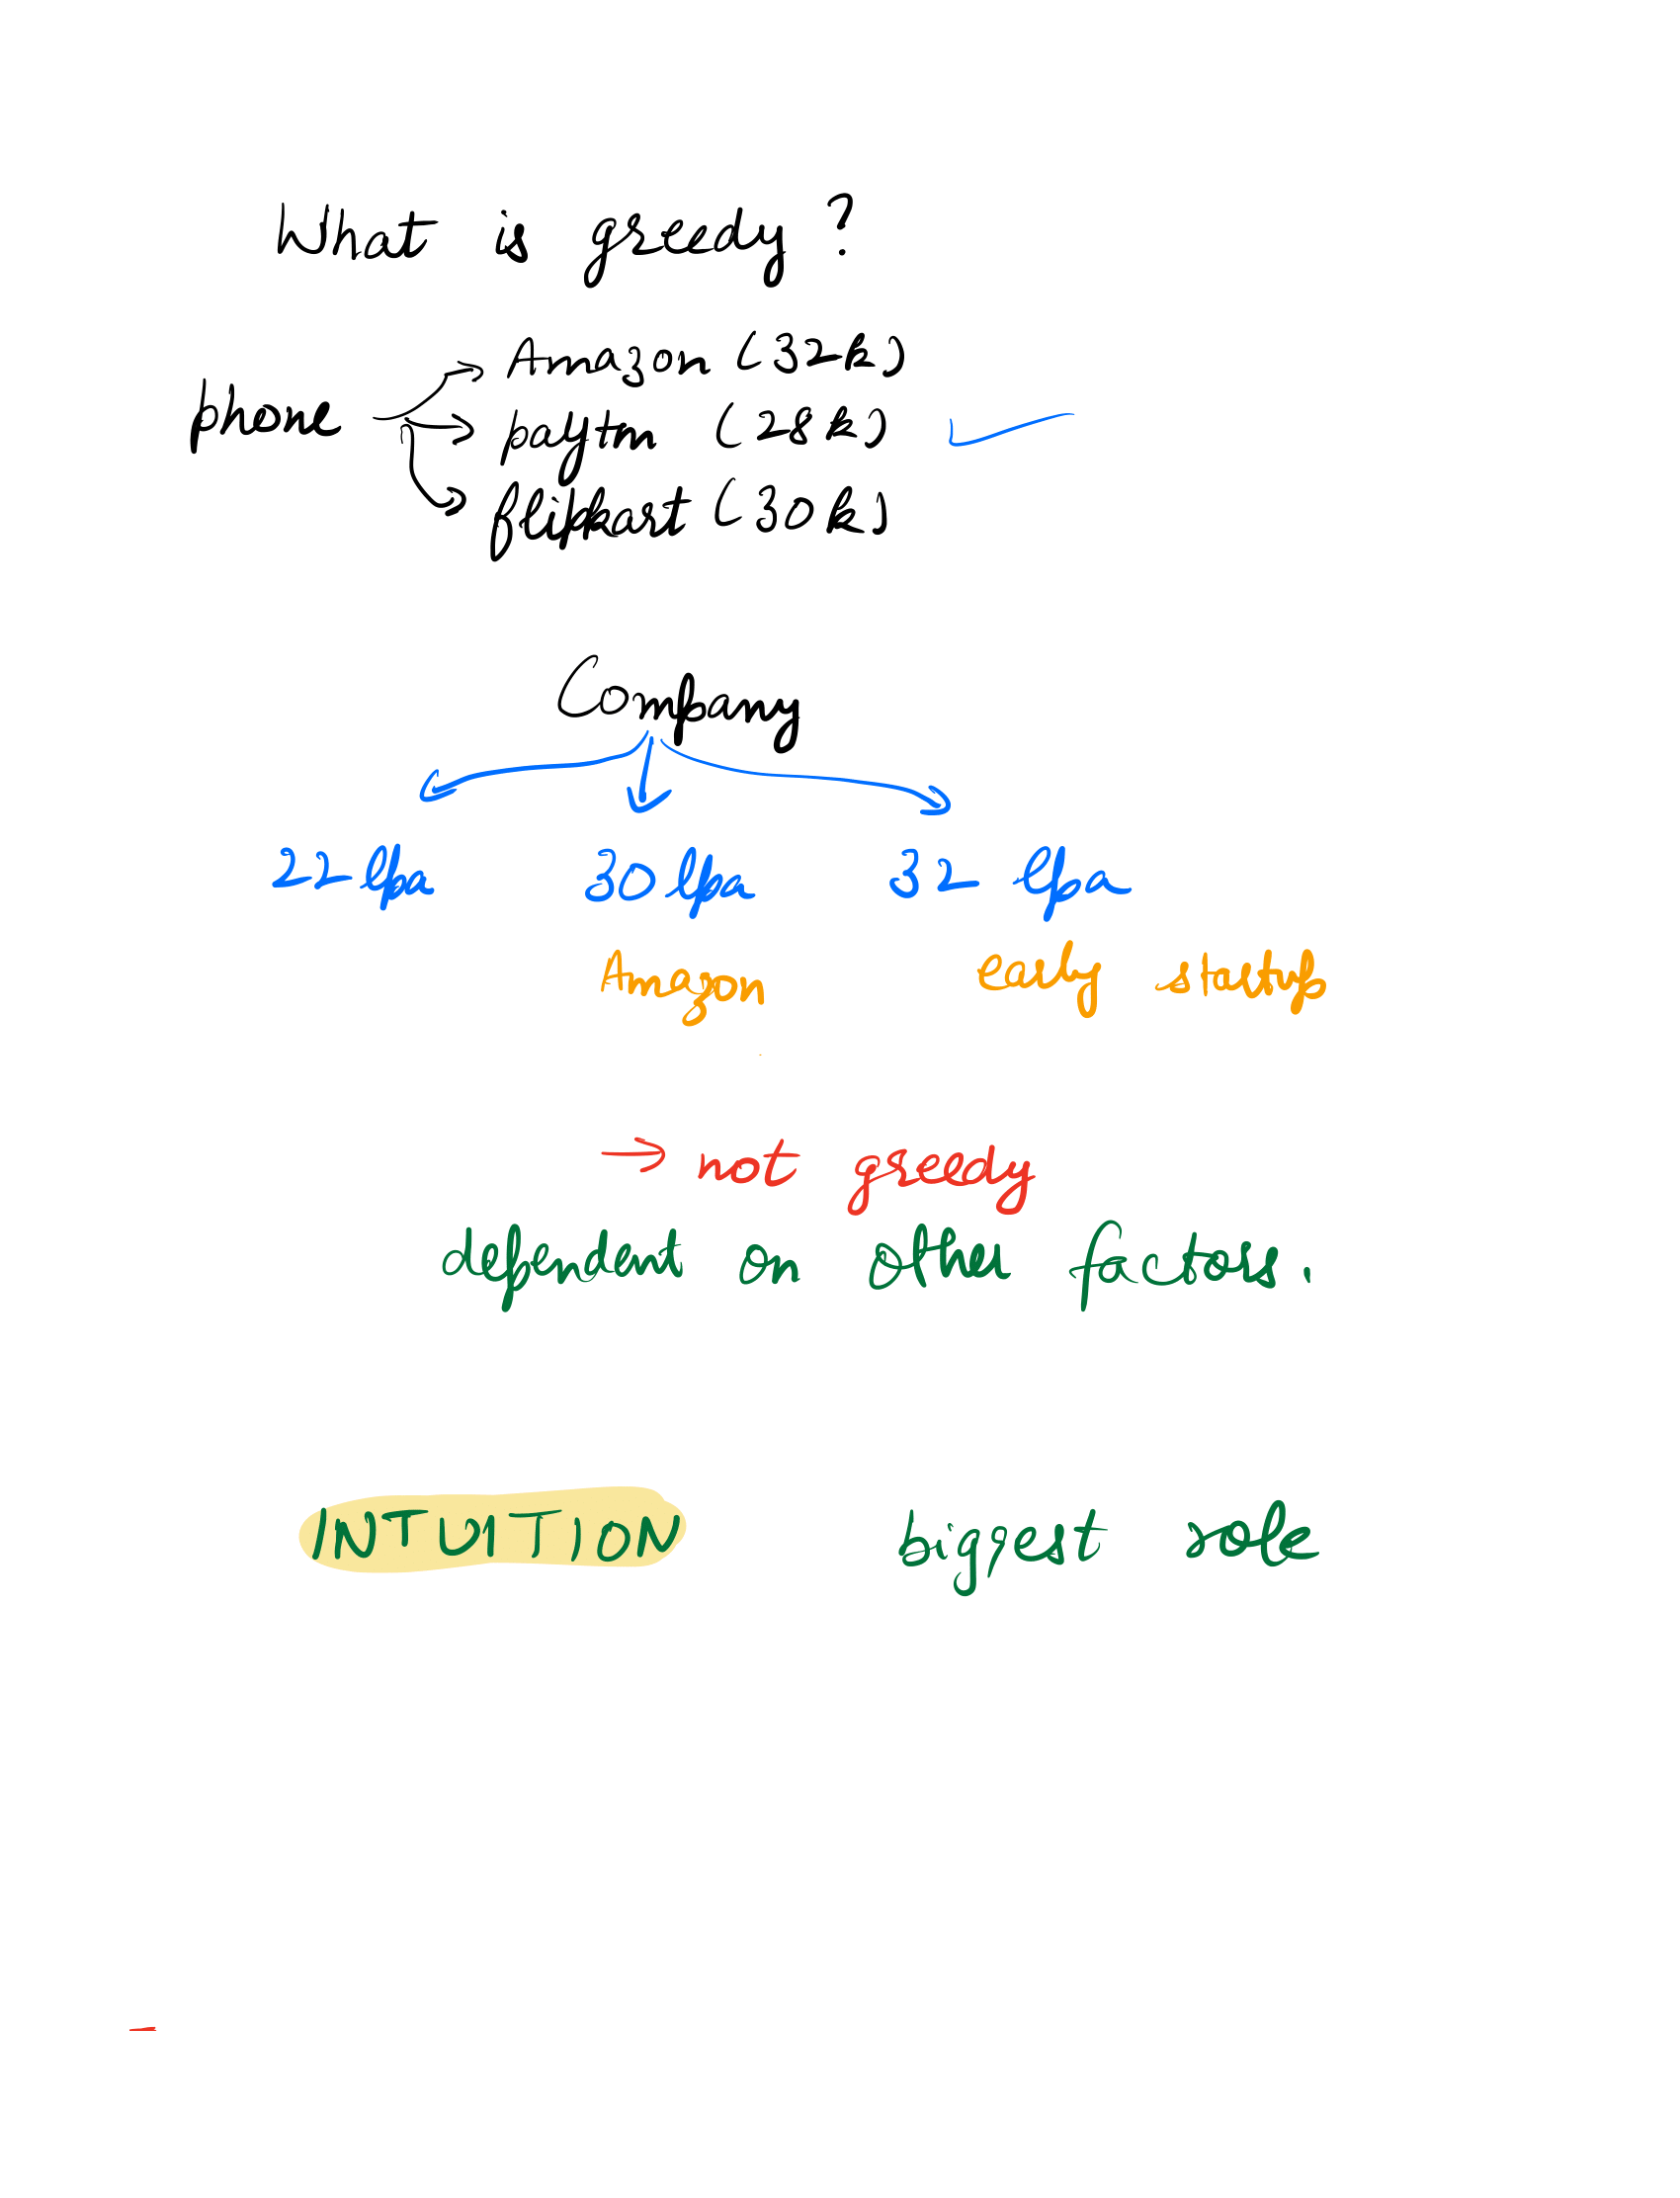 What is greedy ?
Amazon (32k)
phone paytm (28k)
flipkart (30k)
Company
22 lpa 30 lpa 32 lpa
Amazon early startup
→ not greedy
dependent on other factors.
INTUITION biggest role